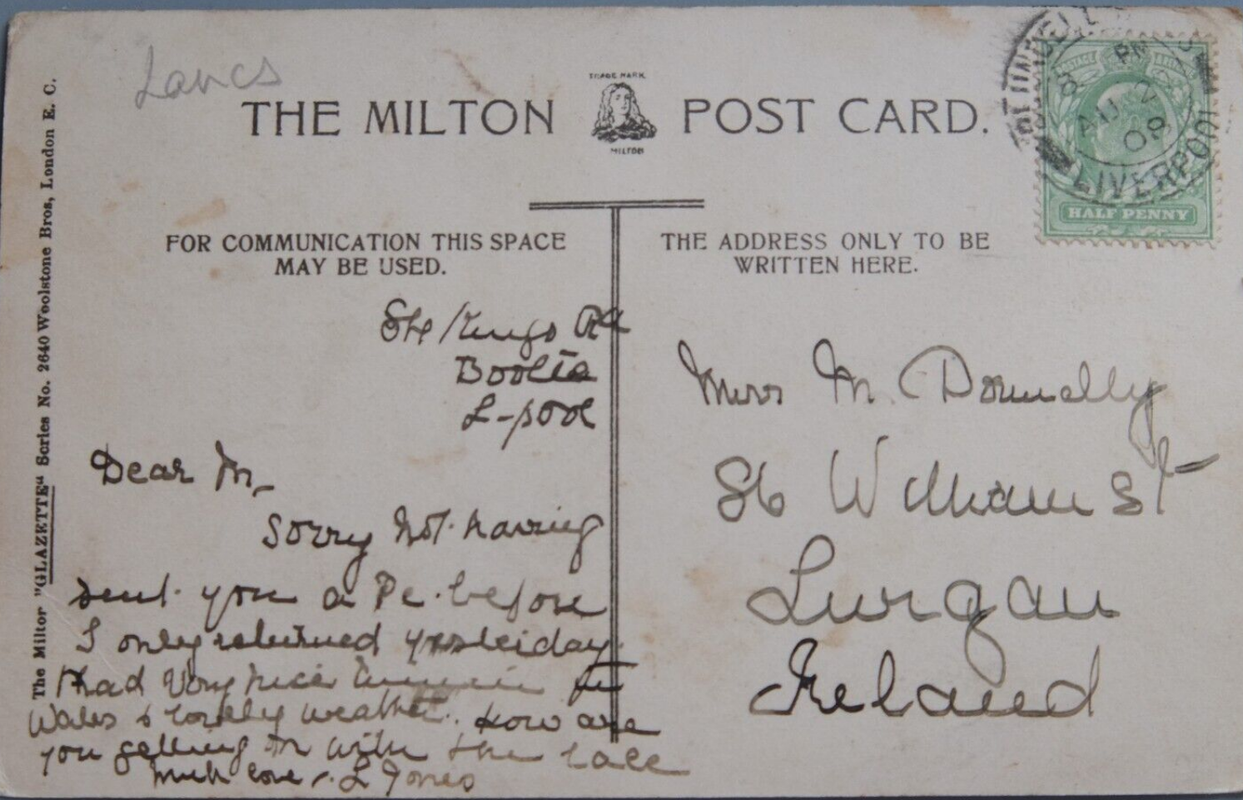 Lancs
THE MILTON POST CARD.
TRADE MARK
MILTON
PM
AU 2
08
LIVERPOOL
HALF PENNY
The Milton "GLAZETTE" Series No. 2640 Woolstone Bros, London E. C.
FOR COMMUNICATION THIS SPACE
MAY BE USED.
THE ADDRESS ONLY TO BE
WRITTEN HERE.
Kings Rd
Bootle
L-pool
Dear M,
Sorry not having
sent you a Pc. before
I only returned yesterday.
Had Very nice time in
Wales & lovely weather. How are
you getting on with the lace
much love L Jones
Miss M. Donnelly
86 William St
Lurgan
Ireland